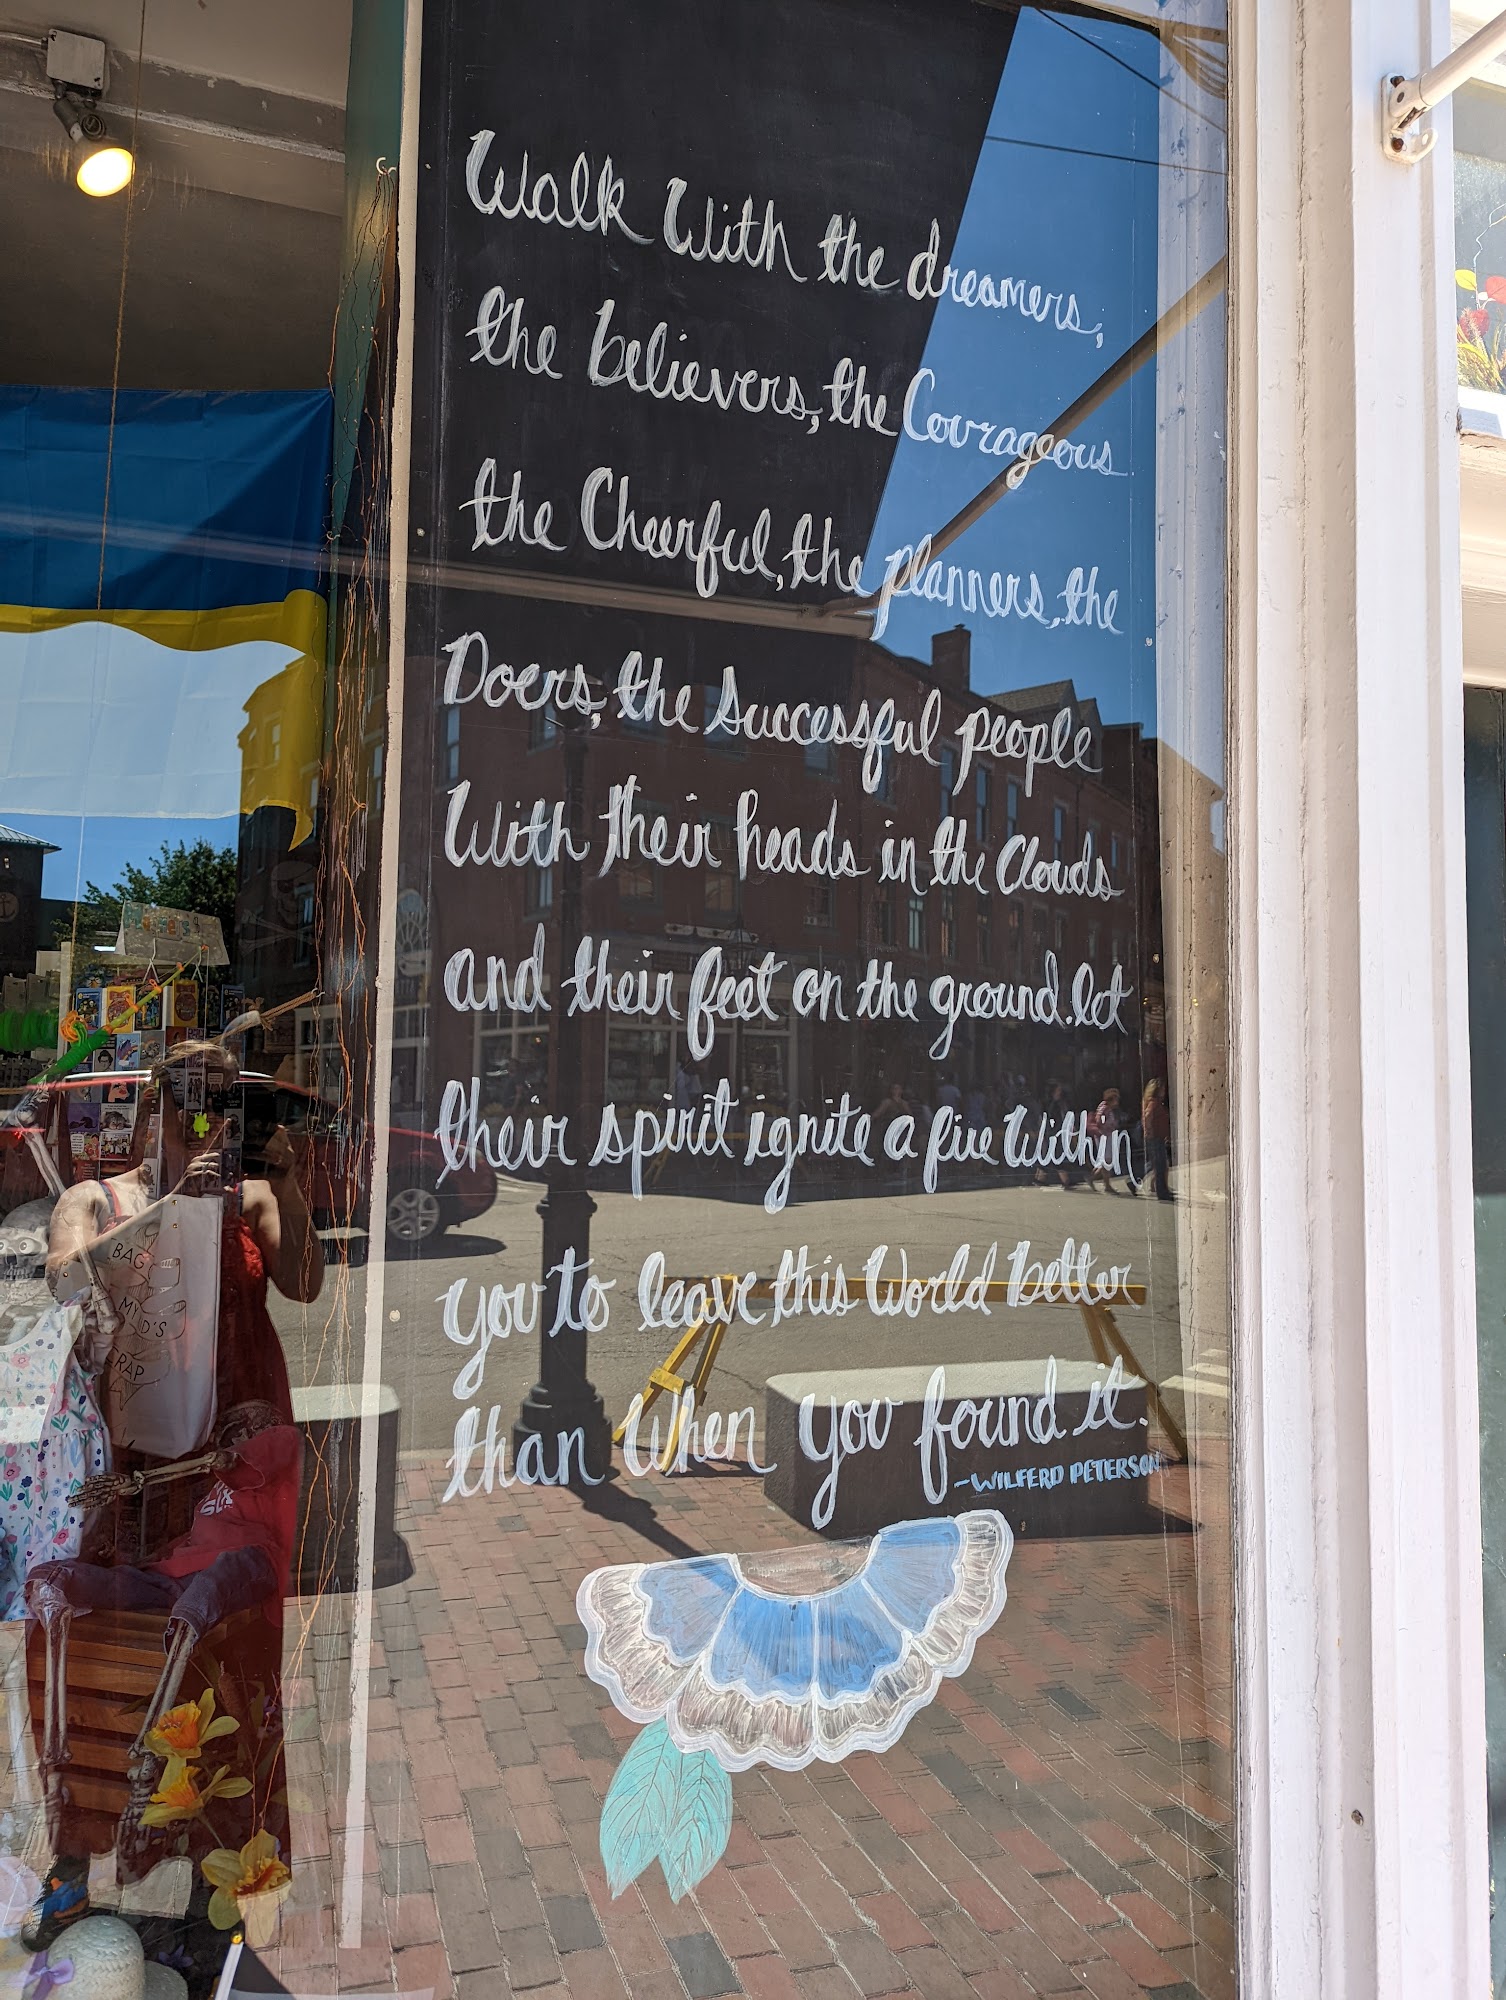 Walk With the dreamers,
the believers, the Courageous
the Cheerful, the planners, the
Doers, the Successful people
With their heads in the Clouds
and their feet on the ground. let
their spirit ignite a fire Within
you to leave this World better
than When you found it.
-WILFERD PETERSON
BAG
MY